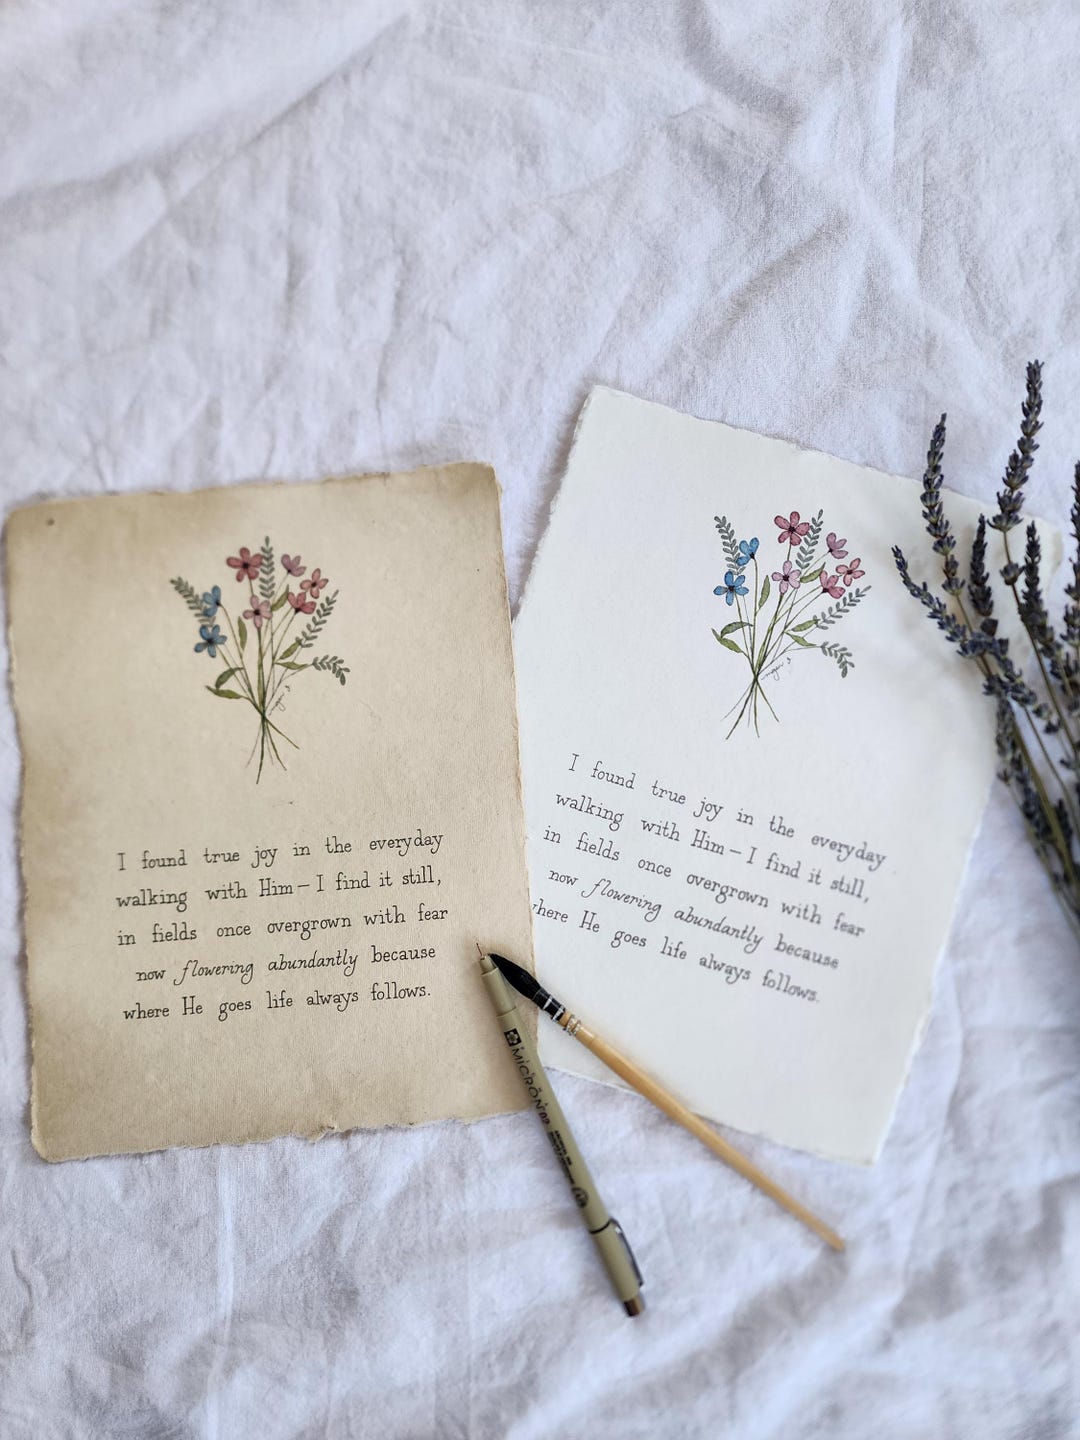 I found true joy in the everyday
walking with Him — I find it still,
in fields once overgrown with fear
now flowering abundantly because
where He goes life always follows.
I found true joy in the everyday
walking with Him — I find it still,
in fields once overgrown with fear
now flowering abundantly because
where He goes life always follows.
MICRON